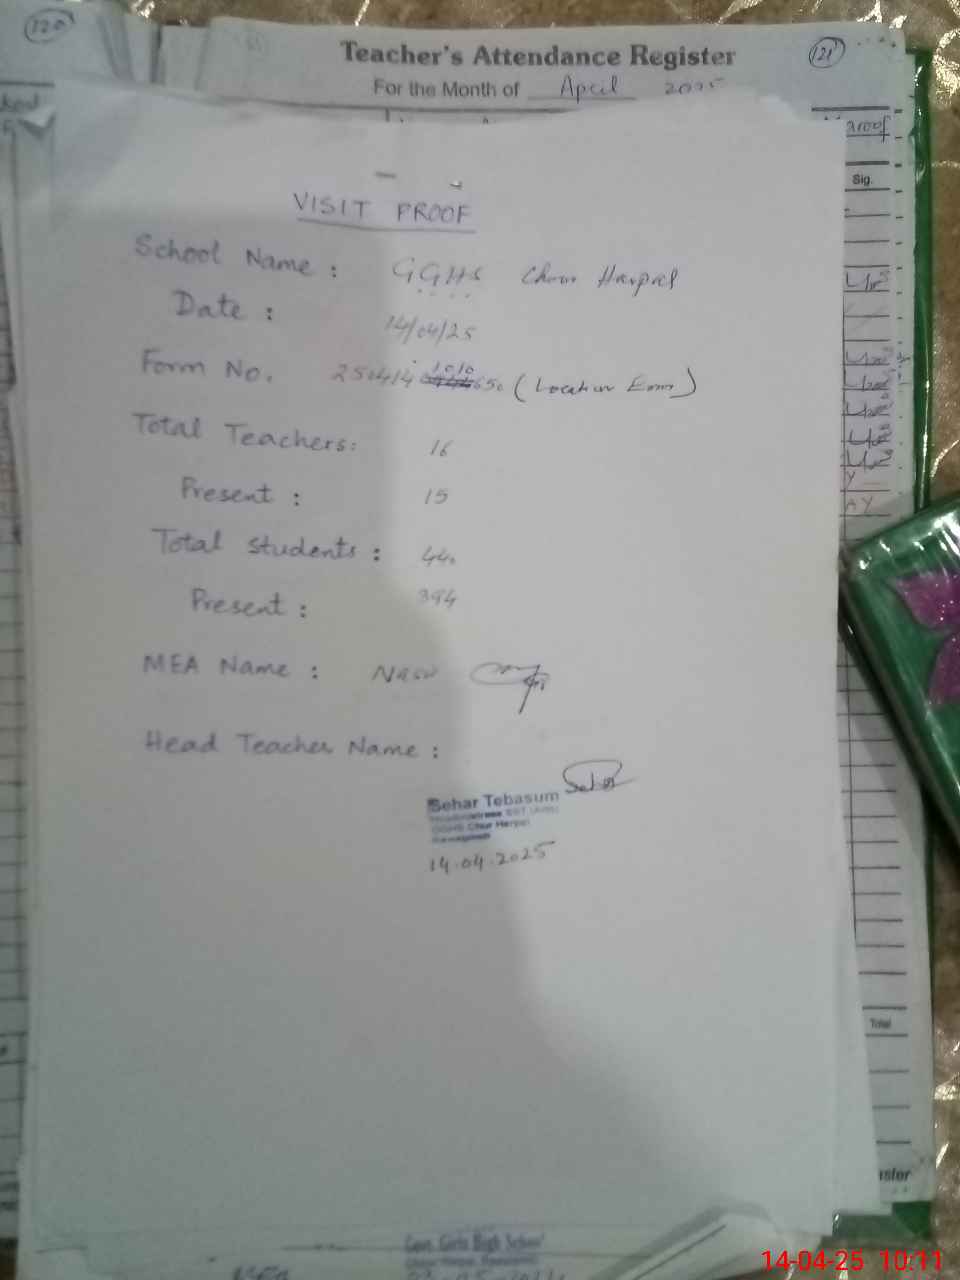 120
Teacher's Attendance Register
121
For the Month of April 2025
Sig.
VISIT PROOF
School Name : GGHS Chour Harpal
Date : 14/04/25
Form No. 250414 1010 650 (Location Error)
Total Teachers: 16
Present : 15
Total Students : 440
Present : 394
MEA Name :
Head Teacher Name :
Sehar Tebasum
Headmistress SST (Arts)
GGHS Chur Harpal
Rawalpindi
14.04.2025
Total
Govt. Girls High School
14-04-25 10:11